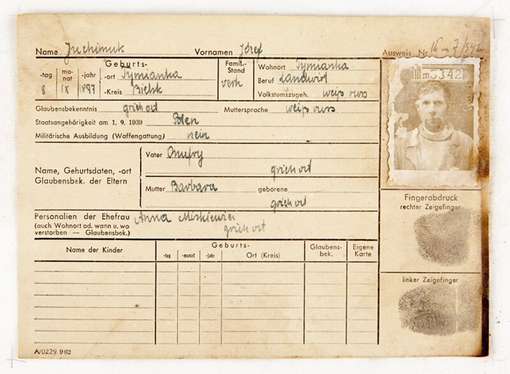 Name Juchimuk Vornamen Józef Ausweis Nr.
Geburts-
-tag mo-nat -jahr -ort Rymianka
8 IX 1897 -Kreis Bielsk
Famil.-Stand verh
Wohnort Rymianka
Beruf Landwirt
Volkstumszugeh. weiß russ
m 342
Glaubensbekenntnis griech ort Muttersprache weiß russ
Staatsangehörigkeit am 1. 9. 1939 Polen
Militärische Ausbildung (Waffengattung) nein
Name, Geburtsdaten, -ort
Glaubensbek. der Eltern
Vater Onufry
griech ort
Mutter Barbara geborene
griech ort
Personalien der Ehefrau Anna
(auch Wohnort od. wann u. wo
verstorben — Glaubensbek.) griech ort
Fingerabdruck
rechter Zeigefinger
linker Zeigefinger
Name der Kinder Geburts- Glaubens-bek. Eigene Karte
-tag -monat -jahr Ort (Kreis)
A/0229 9/42